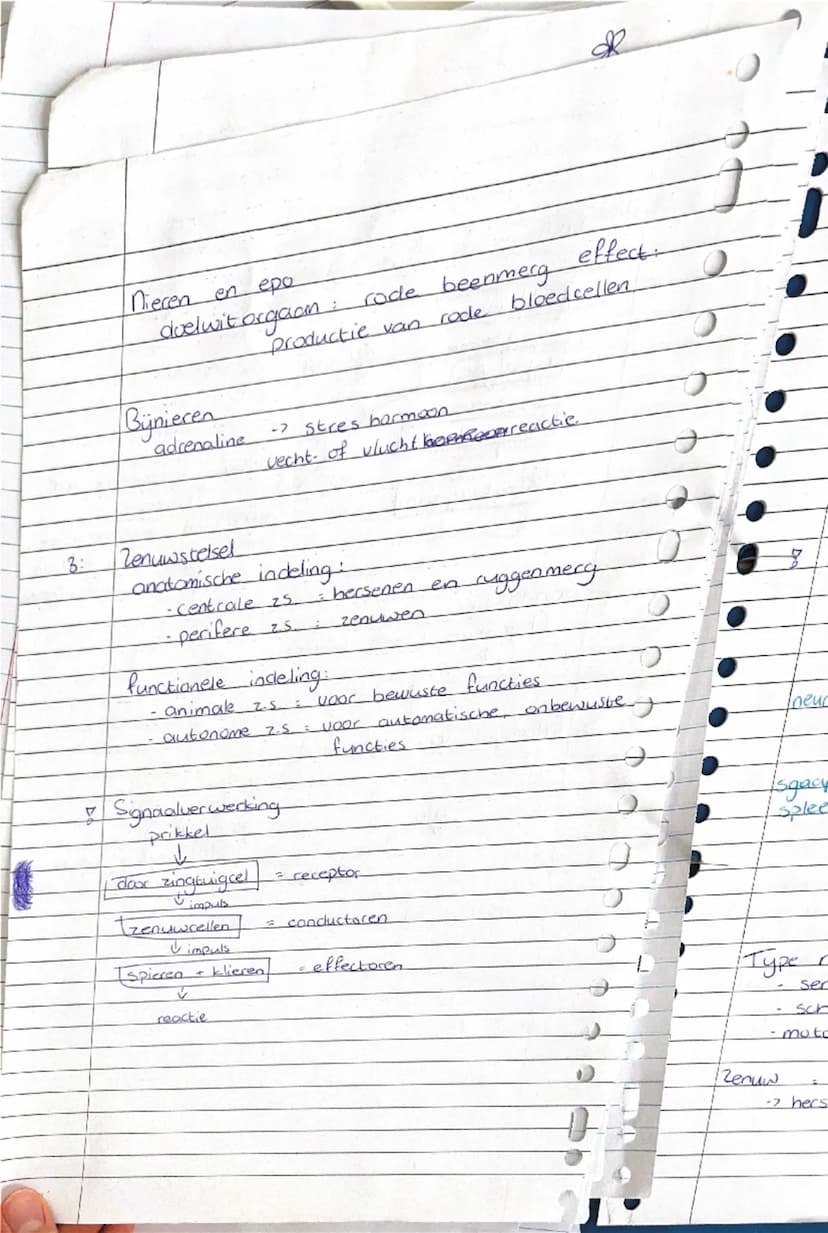 Nieren en epo
doelwitorgaan : rode beenmerg effect:
productie van rode bloedcellen
Bijnieren
adrenaline -> stres hormoon
vecht- of vlucht reactie
3: Zenuwstelsel
anatomische indeling:
- centrale z.s. = hersenen en ruggenmerg
- perifere z.s. : zenuwen
functionele indeling:
- animale z.s = voor bewuste functies
- autonome z.s : voor automatische, onbewuste
functies
Signaalverwerking
prikkel
↓
door zingtuigcel = receptor
↓ impuls
zenuwcellen = conductoren
↓ impuls
spieren + klieren = effectoren
↓
reactie
neur
sgacy
splee
Type
- ser
- sch
- moto
Zenuw =
-> hers